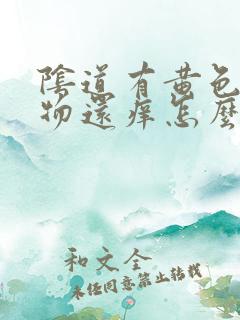 陰道有黄色
物還痒怎麼
和文全
未经同意禁止转载